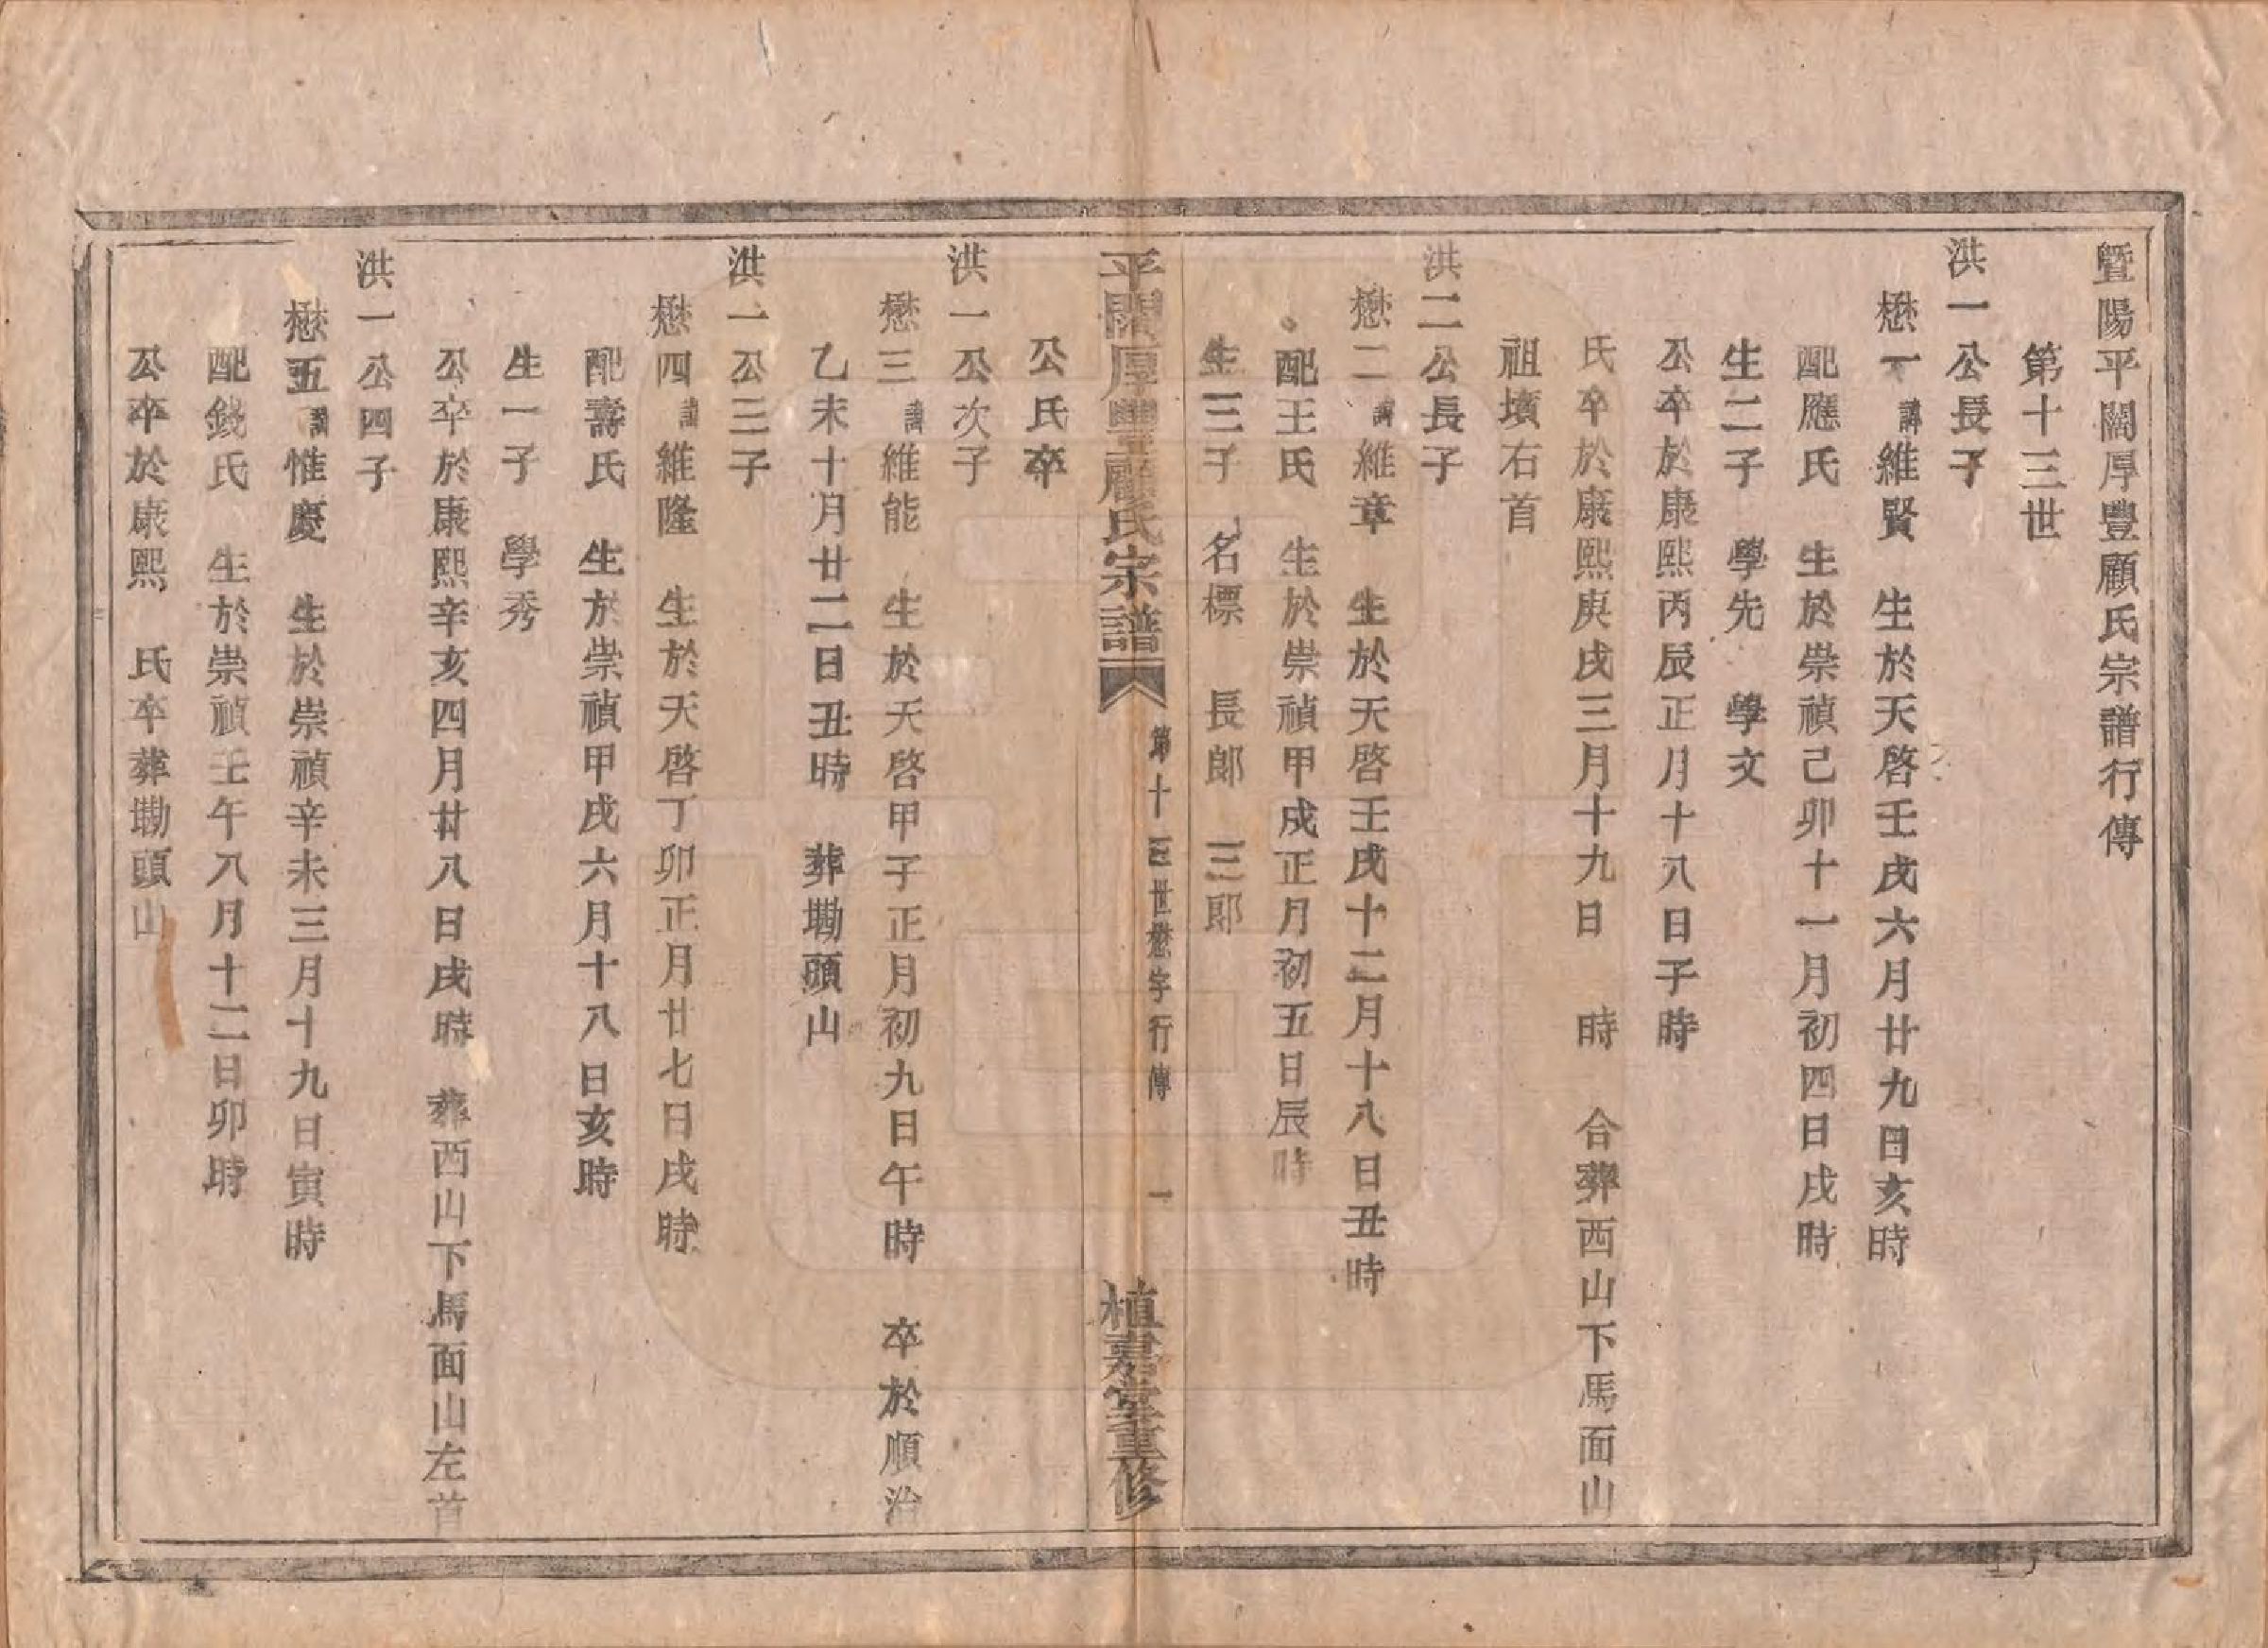 暨陽平闊厚豐顧氏宗譜行傳
第十三世
洪一公長子
懋一諱維賢　生於天啓壬戌六月廿九日亥時
配應氏　生於崇禎己卯十一月初四日戌時
生二子　學先　學文
公卒於康熙丙辰正月十八日子時
氏卒於康熙庚戌三月十九日　時　合葬西山下馬面山
祖墳右首
洪二公長子
懋二諱維章　生於天啓壬戌十二月十八日丑時
配王氏　生於崇禎甲戌正月初五日辰時
生三子　名標　長郎　三郎
平闊厚豐顧氏宗譜　第十三世懋字行傳　一　植嘉堂重修
公氏卒
洪一公次子
懋三諱維能　生於天啓甲子正月初九日午時　卒於順治
乙未十月廿二日丑時　葬墈頭山
洪一公三子
懋四諱維隆　生於天啓丁卯正月廿七日戌時
配壽氏　生於崇禎甲戌六月十八日亥時
生一子　學秀
公卒於康熙辛亥四月廿八日戌時　葬西山下馬面山左首
洪一公四子
懋五諱惟慶　生於崇禎辛未三月十九日寅時
配錢氏　生於崇禎壬午八月十二日卯時
公卒於康熙　氏卒葬墈頭山